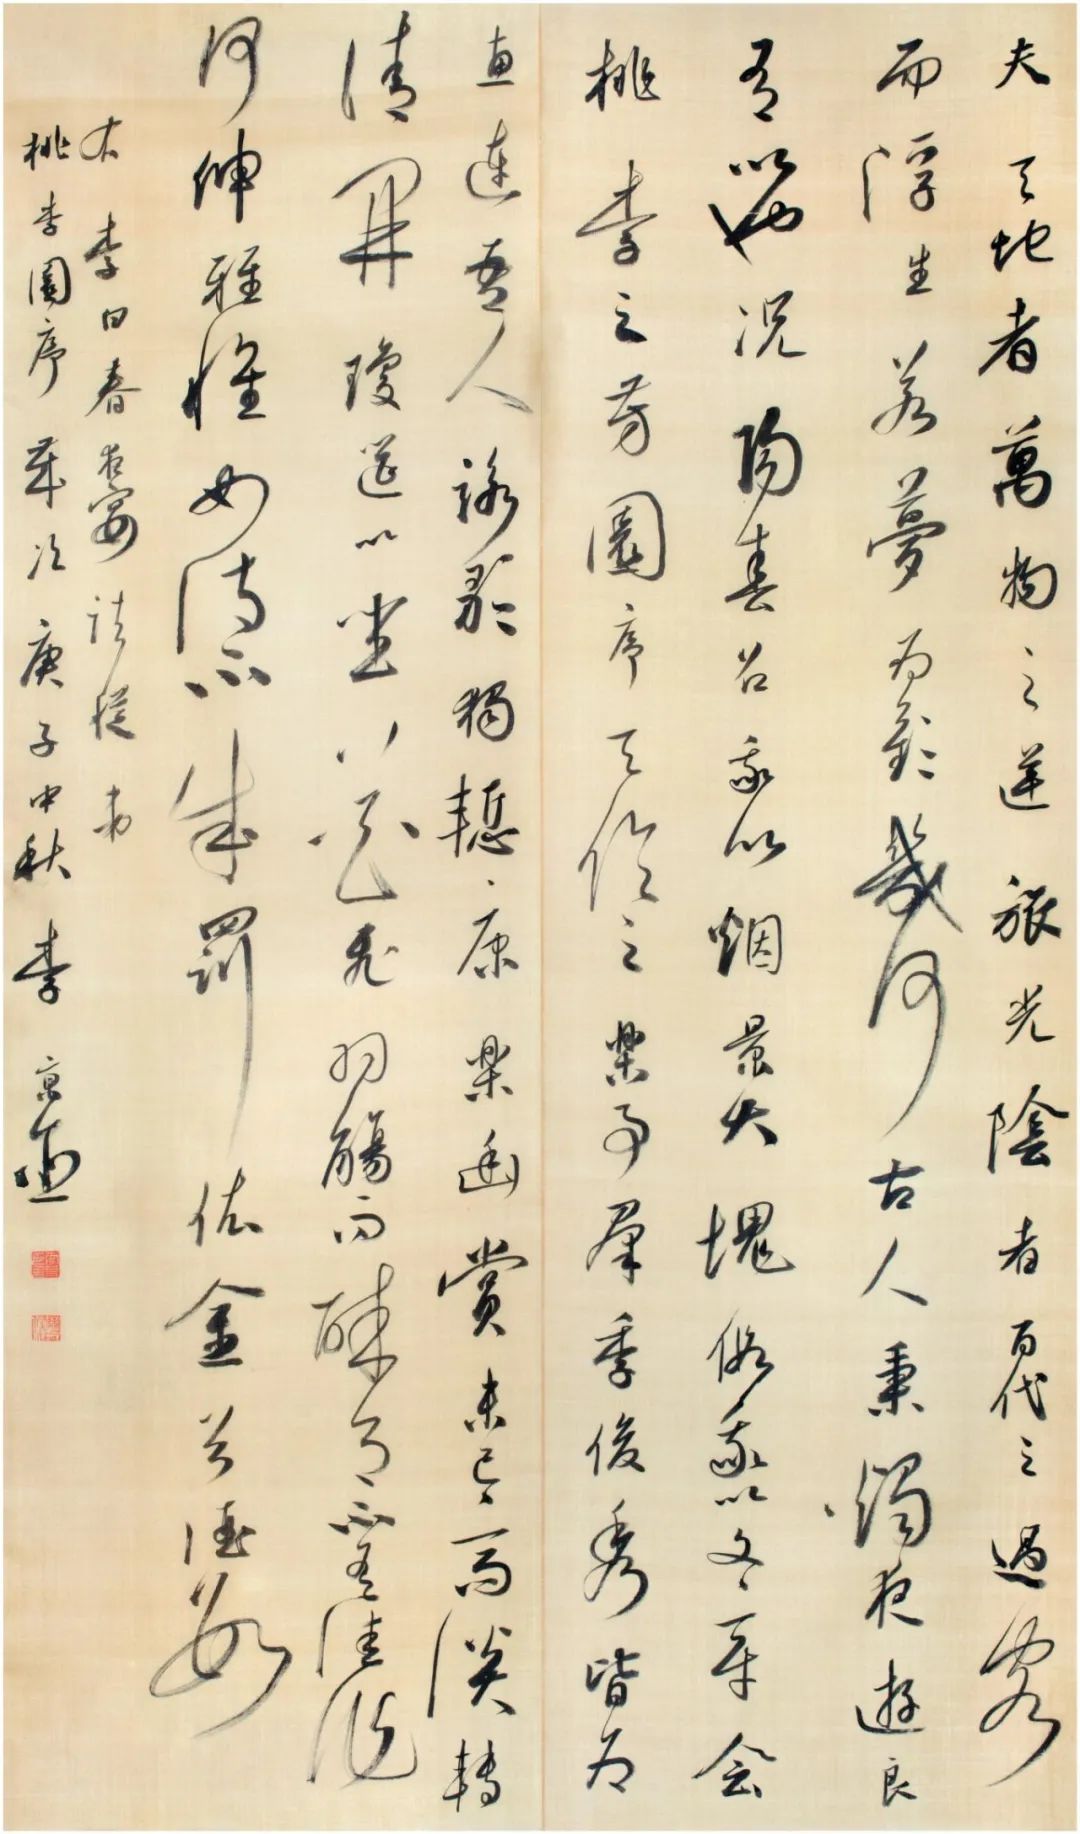 夫天地者萬物之逆旅光陰者百代之過客
而浮生若夢為歡幾何古人秉燭夜遊良
有以也況陽春召我以烟景大塊假我以文章會
桃李之芳園序天倫之樂事羣季俊秀皆為
惠連吾人詠歌獨慙康樂幽賞未已高談轉
清開瓊筵以坐花飛羽觴而醉月不有佳作
何伸雅懷如詩不成罰依金谷酒數
右李白春夜宴諸從弟
桃李園序歲次庚子中秋李